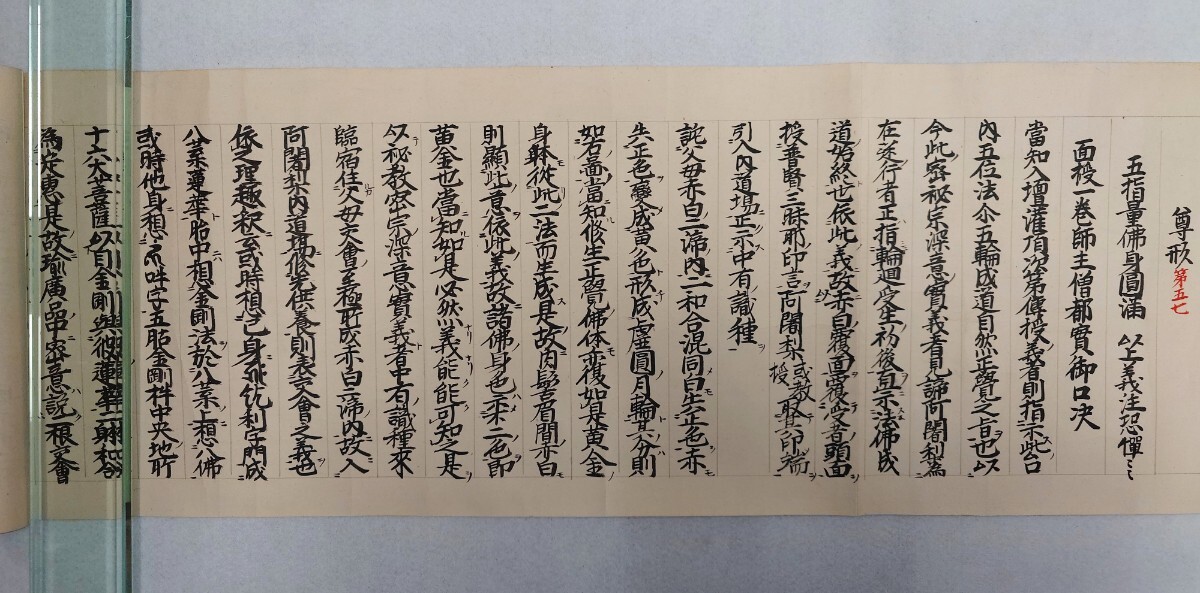 尊形 第五七
五指量佛身圓滿 以上義注恐憚〻〻
面授一巻師主僧都實御口決
當知入壇灌頂次第傳授義者則指示此臺
内五位法尒五輪成道自然正覺之旨也以
今此密秘宗深意實義者見諦阿闍利為
在迷行者正指輪廻受生初後直示法佛成
道始終也依此義故赤白覆面覆受者頭面
授普賢三昧耶印言阿闍梨或教授共印端
引入内道場正示中有識種
託父母赤白二渧内二和合混同日生正色赤
失正色變成黄色形成虚圓月輪其分則
如若畐當知修生正覺佛体変復如是黄金
身躰從此二法而生成是故肉髻眉間赤白
則顯此意依此義故諸佛身色不二色即
黄金也當知如是必然義能能可知之是
以祕教密宗深意實義者中有識種來
臨宿住父母交會至極所成赤白二渧内故入
阿闍梨内道場修羌供養則表交會之義也
依之理趣釈云或時想己身紇利字門成
八葉蓮華胎中想金剛法於八葉上想八佛
或時他身想吽字五股金剛杵中央地所
十六大菩薩以自金剛與彼蓮華二躰和合
為定惠是故瑜伽廣品中密意說二根交會